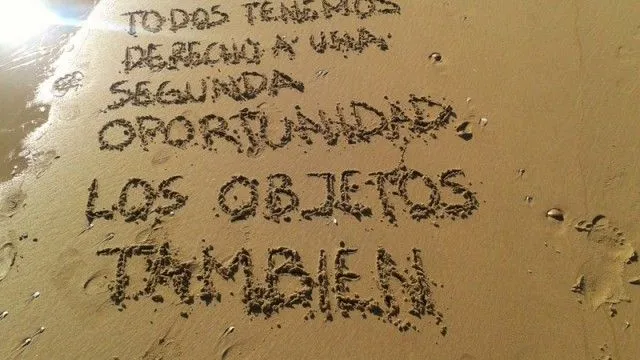 TODOS TENEMOS
DERECHO A UNA
SEGUNDA
OPORTUNIDAD.
LOS OBJETOS
TAMBIEN